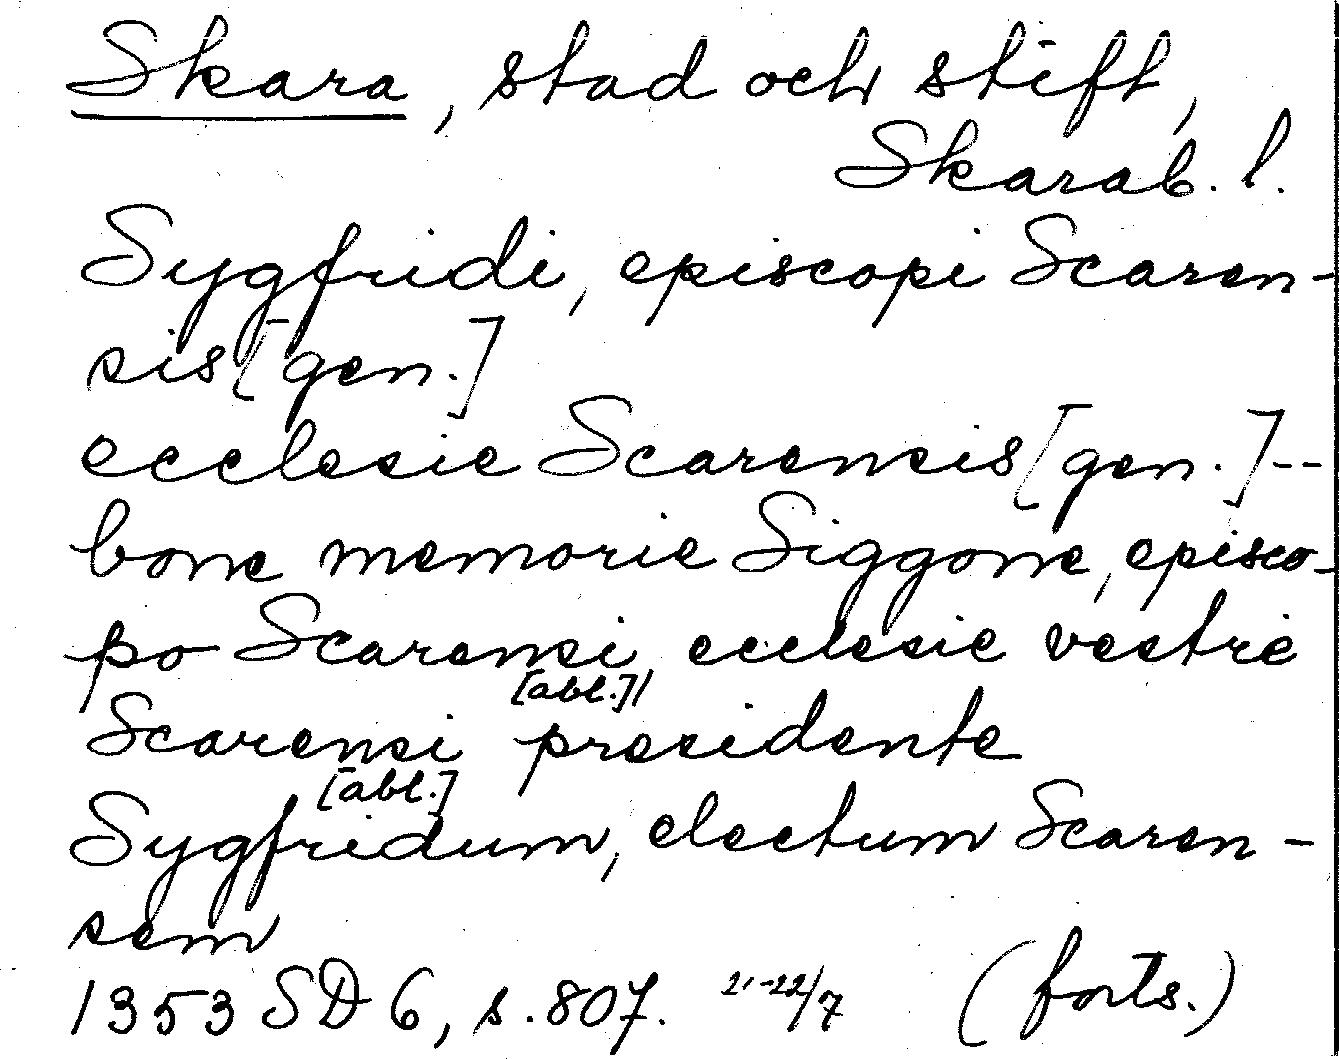 Skara, stad och stift,
Skarab. l.
Sygfridi, episcopi Scaren-
sis [gen.]
ecclesie Scarensis [gen.] --
bone memorie Siggone, episco-
po Scarensi, ecclesie vestre
[abl.]
Scarensi presidente
[abl.]
Sygfridum, electum Scaren-
sem
1353 SD 6, s. 807. 21-22/7 (forts.)